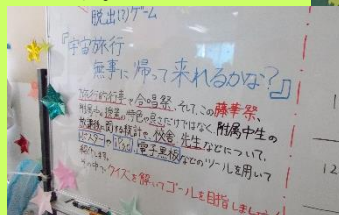 脱出(?)ゲーム
『宇宙旅行
無事に帰って来れるかな?』
旅行的行事や合唱祭、そして、この藤華祭、
附属中の授業の特色の良さだけではなく、附属中生の
に関する統計や、校舎、先生などについて、
電子黒板などのツールを用いて
紹介します。
その中でクイズを解いてゴールを目指しましょう
1
12